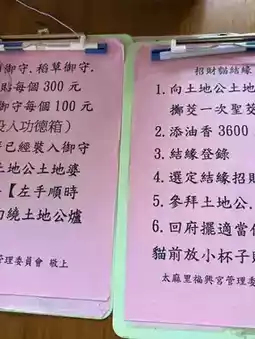 御守.稻草御守.
貼每個 300 元
御守每個 100 元
投入功德箱)
已經裝入御守
土地公土地婆
【左手順時
繞土地公爐
管理委員會 敬上
招財貓結緣
1. 向土地公土地
擲茭一次聖茭
2. 添油香 3600
3. 結緣登錄
4. 選定結緣招財
5. 參拜土地公.
6. 回府擺適當位
貓前放小杯子
太麻里福興宮管理委